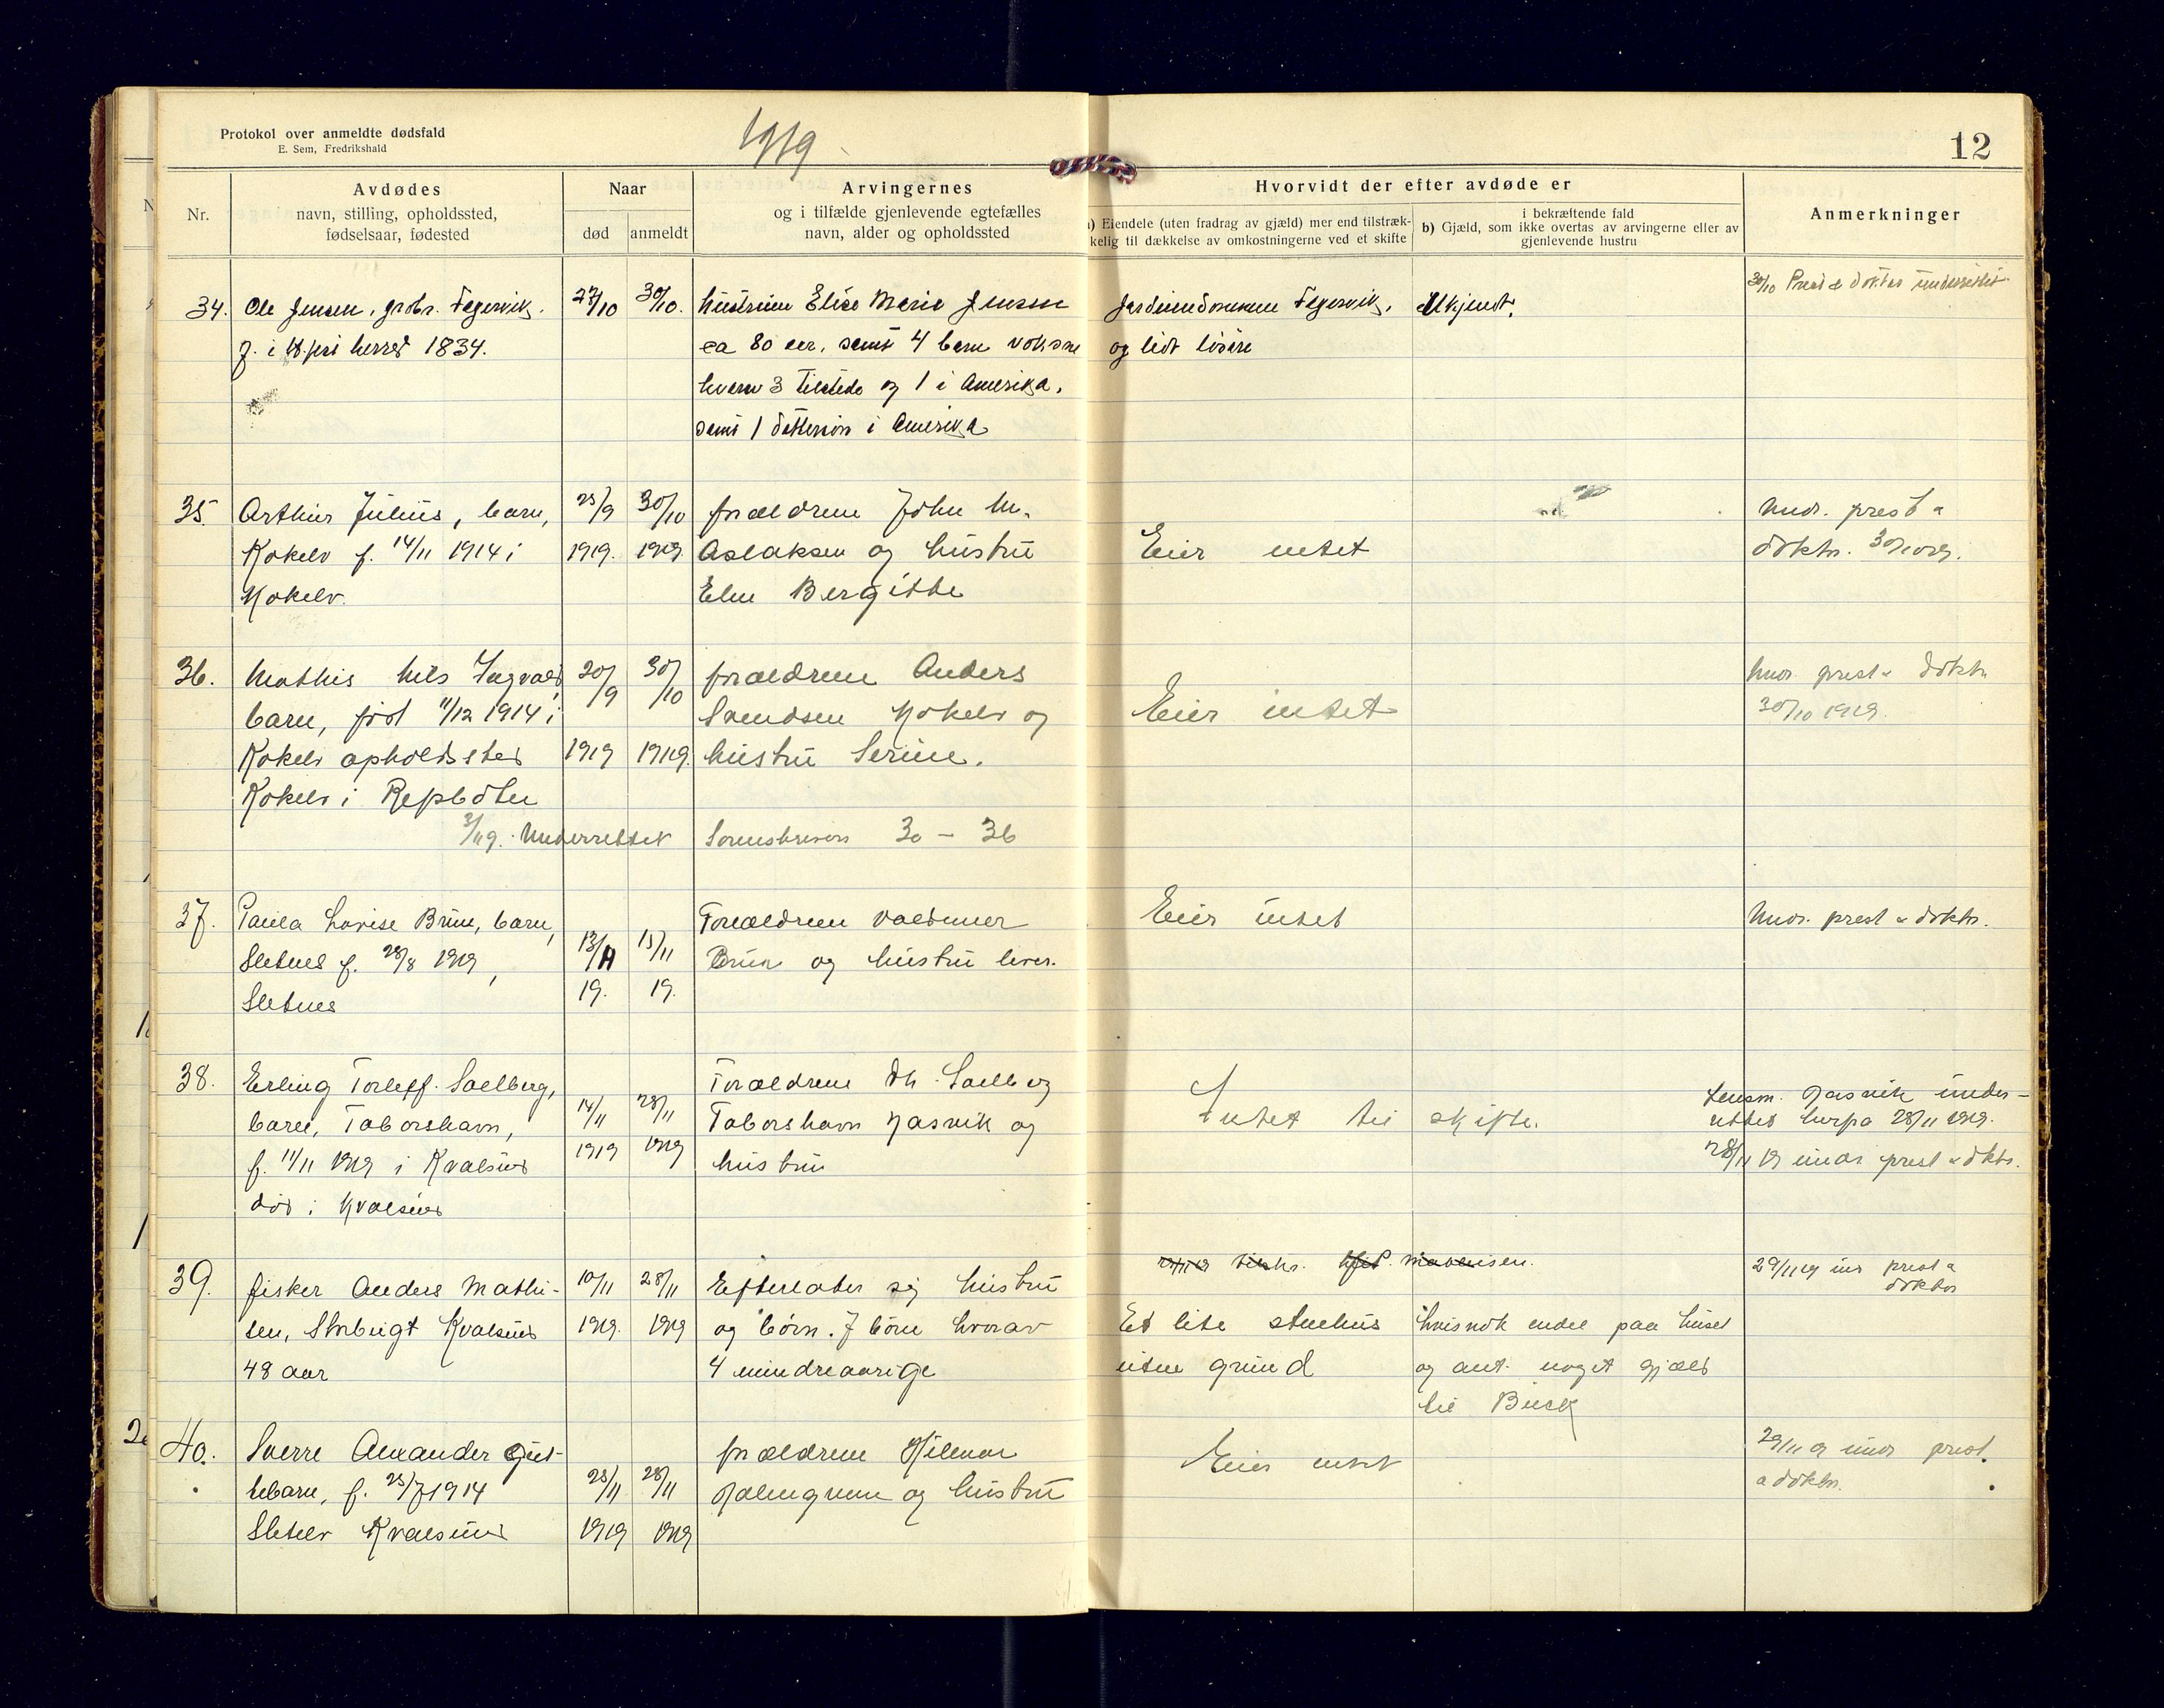 Protokol over anmeldte dødsfald
E. Sem, Fredrikshald
1919
12
Nr.
Avdødes
navn, stilling, opholdssted,
fødselsaar, fødested
Naar
død
anmeldt
Arvingernes
og i tilfælde gjenlevende egtefælles
navn, alder og opholdssted
Hvorvidt der efter avdøde er
a) Eiendele (uten fradrag av gjæld) mer end tilstræk-
kelig til dækkelse av omkostningerne ved et skifte
i bekræftende fald
b) Gjæld, som ikke overtas av arvingerne eller av
gjenlevende hustru
Anmerkninger
34. Ole Jensen, grdbr. Fegervik.
f. i herred 1834.
27/10
30/10.
hustruen Elise Marie Jensen
ca 80 aar, samt 4 barn voksne
hvorav 3 tilstede og 1 i Amerika,
samt 1 dattersøn i Amerika
Jordeiendommen Fegervik,
og lidt løsøre
Ukjendt.
30/10 Prest & doktor underrettet
35. Arthur Julius, barn,
Kokelv f. 14/11 1914 i
Kokelv.
25/9
1919.
30/10
1919
forældrene John M.
Aslaksen og hustru
Elen Bergitte
Eier intet
Undr. prest &
doktor. 30/10 19.
36. Mathis Nils Ingvald
barn, født 11/12 1914 i
Kokelv opholdssted
Kokelv i Repbotn
20/9
1919
30/10
1919.
forældrene Anders
Svendsen Kokelv og
hustru Serine.
Eier intet
Undr. prest & doktor
30/10 1919.
3/11 19. Underrettet Sorenskriveren 30 - 36
37. Paula Lovise Brun, barn,
Sletnes f. 28/8 1919,
Sletnes
13/11
19.
15/11
19.
Forældrene Valdemar
Brun og hustru lever.
Eier intet
Undr. prest & doktor.
38. Erling Torleff. Soelberg,
barn, Taborshavn,
f. 11/11 1919 i Kvalsund
død i Kvalsund
14/11
1919
28/11
1919
Forældrene Soelberg
Taborshavn og
hustru
Intet til skifte.
Lensm. under-
rettet herpå 28/11 1919.
28/11 19 undr prest & doktr.
39. fisker Anders Mathi-
sen, Storbugt Kvalsund
48 aar
10/11
1919.
28/11
1919
Efterlater sig hustru
og børn. 7 børn hvorav
4 mindreaarige
Et lite stuehus
uten grund
hvisnok endel paa huset
og ant. noget gjæld
til Buck
29/11 19 un prest &
doktor
40. Sverre Alexander
barn, f. 25/7 1914
Sletelv Kvalsund
25/11
1919
28/11
1919
forældrene Hilmar
og hustru
Eier intet
29/11 19 undr prest
& doktor.